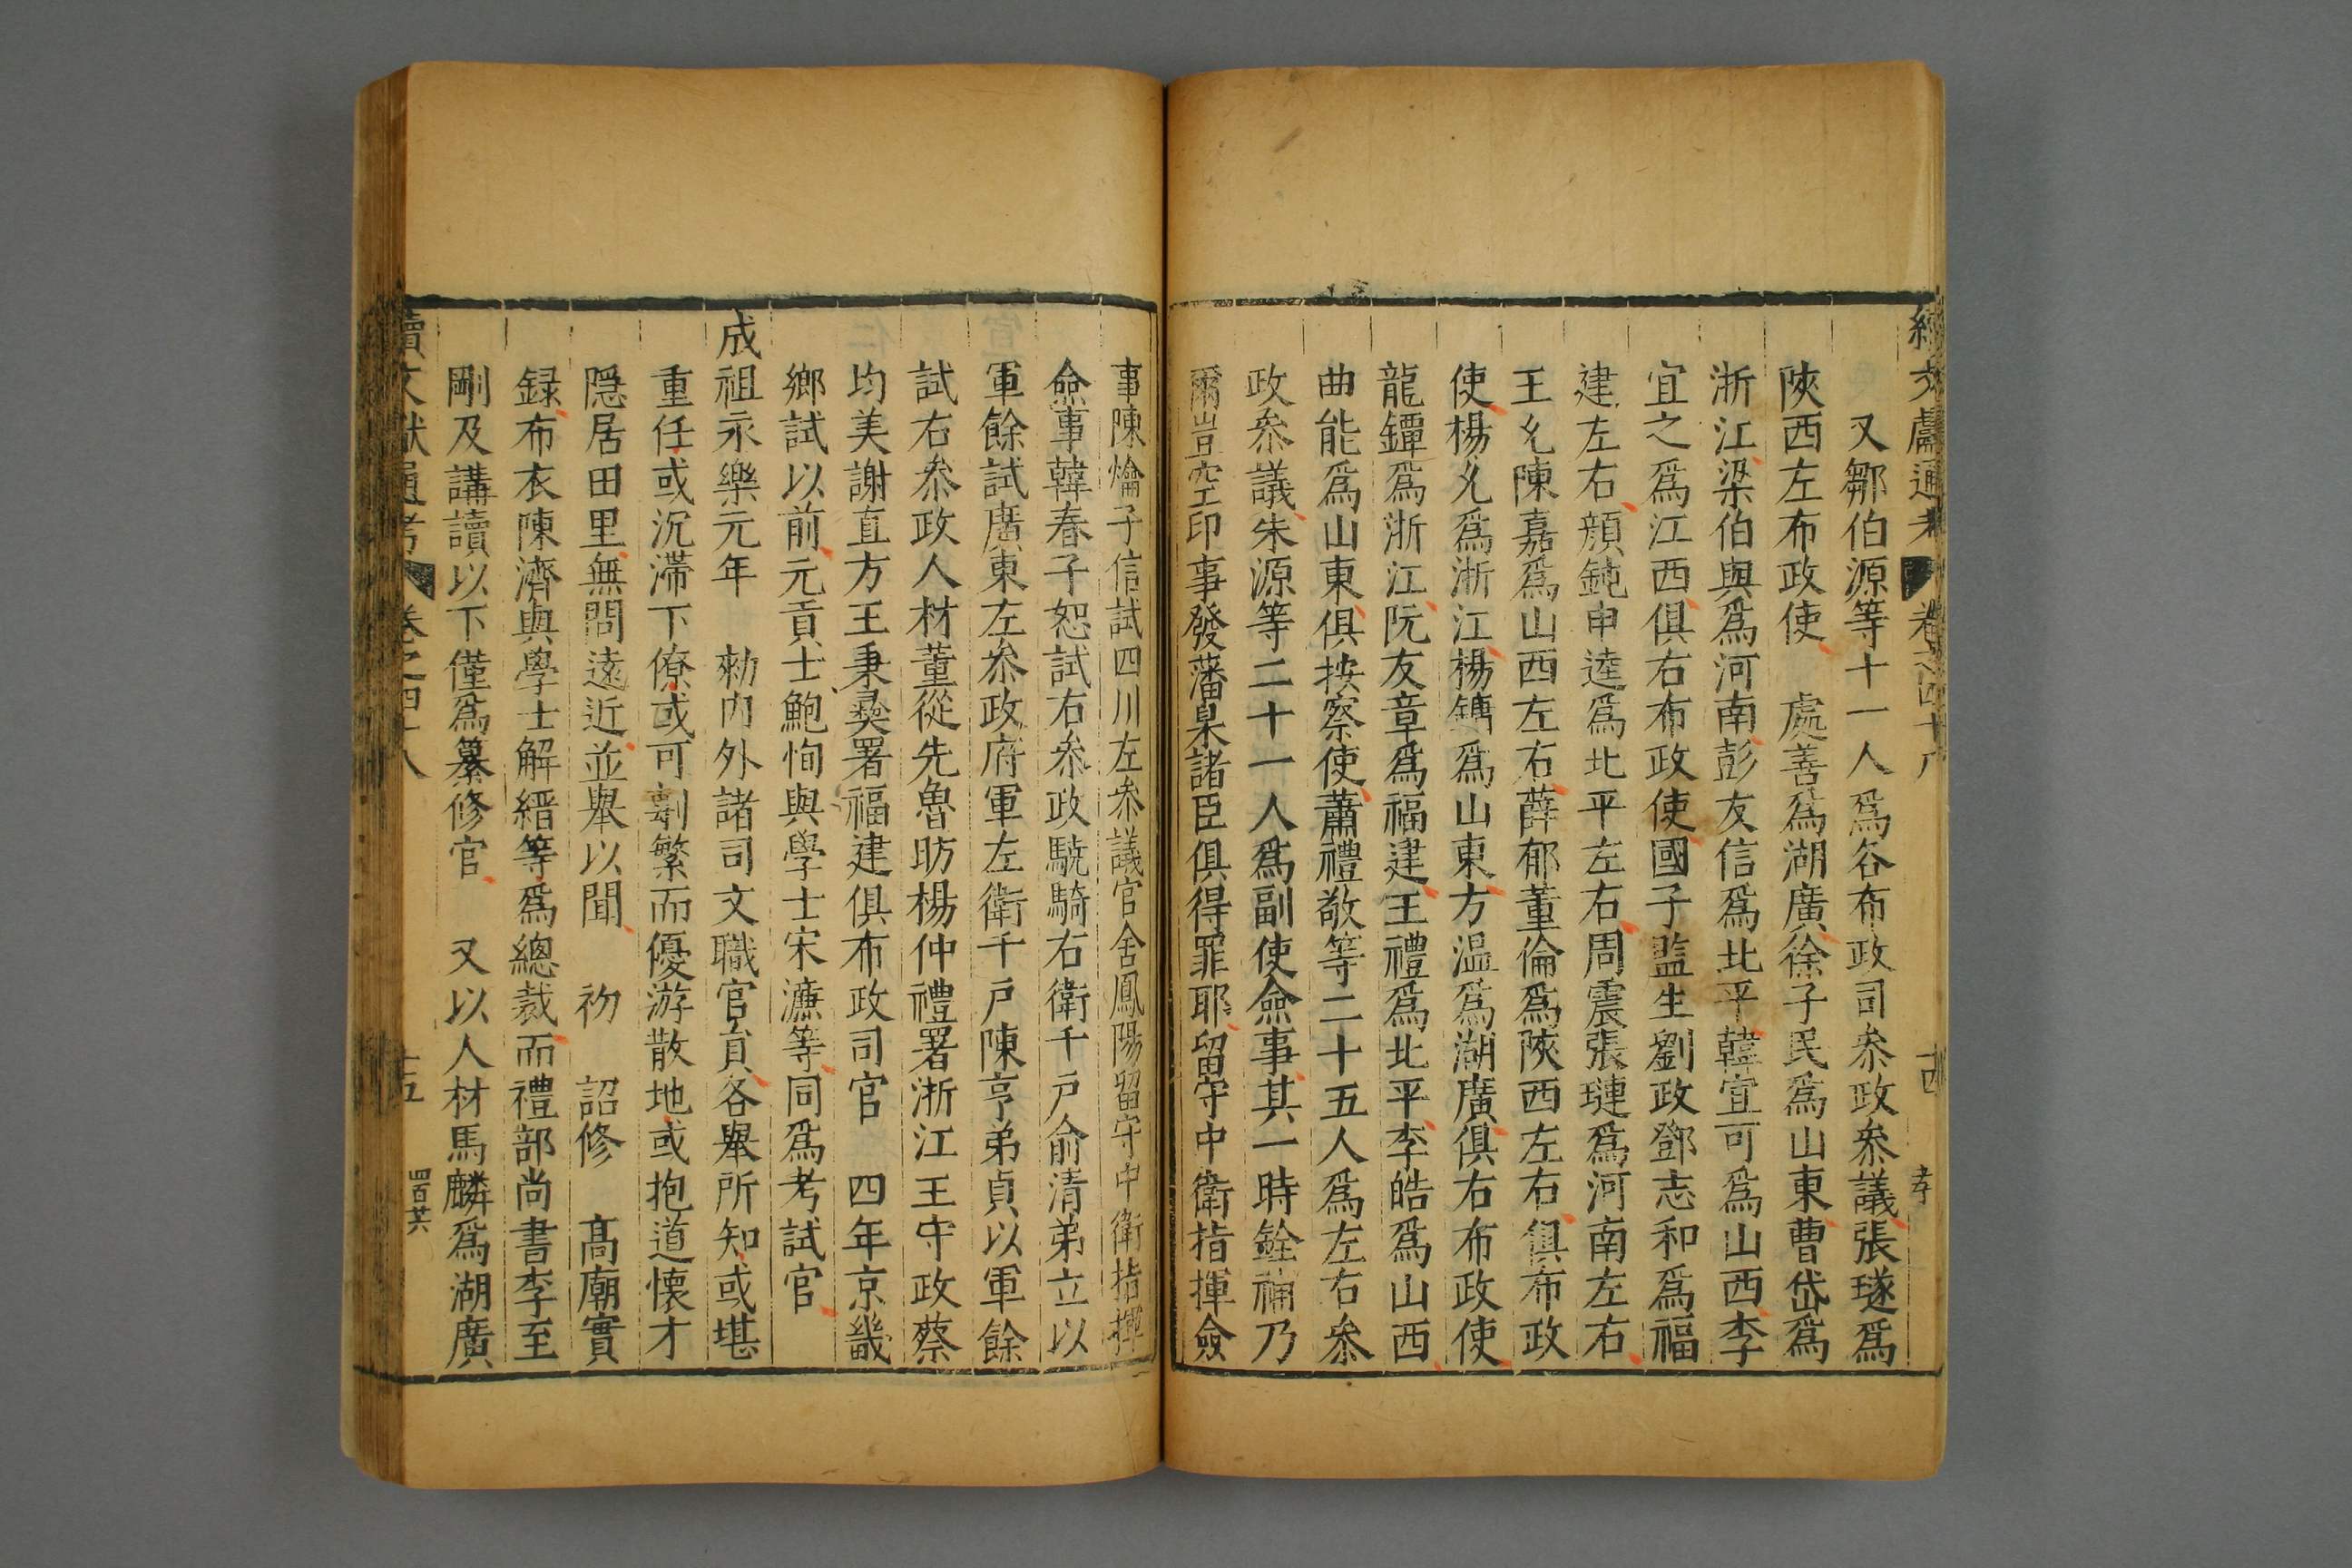 續文獻通考 卷之四十八 十四 孝
又鄒伯源等十一人爲各布政司叅政叅議張璲爲
陜西左布政使 處善爲湖廣徐子民爲山東曹岱爲
浙江梁伯與爲河南彭友信爲北平韓宜可爲山西李
宜之爲江西俱右布政使國子監生劉政鄧志和爲福
建左右顔鈍申逵爲北平左右周震張璉爲河南左右
王允陳嘉爲山西左右薛郁董倫爲陜西左右俱布政
使楊允爲浙江楊鏞爲山東方溫爲湖廣俱右布政使
龍鐔爲浙江阮友章爲福建王禮爲北平李皓爲山西
曲能爲山東俱按察使蕭禮敬等二十五人爲左右叅
政叅議朱源等二十一人爲副使僉事其一時銓補乃
爾豈空印事發藩臬諸臣俱得罪耶留守中衛指揮僉
事陳爚子信試四川左叅議官舍鳳陽留守中衛指揮
僉事韓春子恕試右叅政驍騎右衛千戶俞清弟立以
軍餘試廣東左叅政府軍左衛千戶陳亨弟貞以軍餘
試右叅政人材董從先魯昉楊仲禮署浙江王守政蔡
均美謝直方王秉彜署福建俱布政司官 四年京畿
鄉試以前元貢士鮑恂與學士宋濂等同爲考試官
成祖永樂元年 勑內外諸司文職官員各舉所知或堪
重任或沉滯下僚或可剸繁而優游散地或抱道懷才
隱居田里無問遠近並舉以聞 初 詔修 高廟實
録布衣陳濟與學士解縉等爲總裁而禮部尚書李至
剛及講讀以下僅爲纂修官 又以人材馬麟爲湖廣
續文獻通考 卷之四十八 十五 四百六